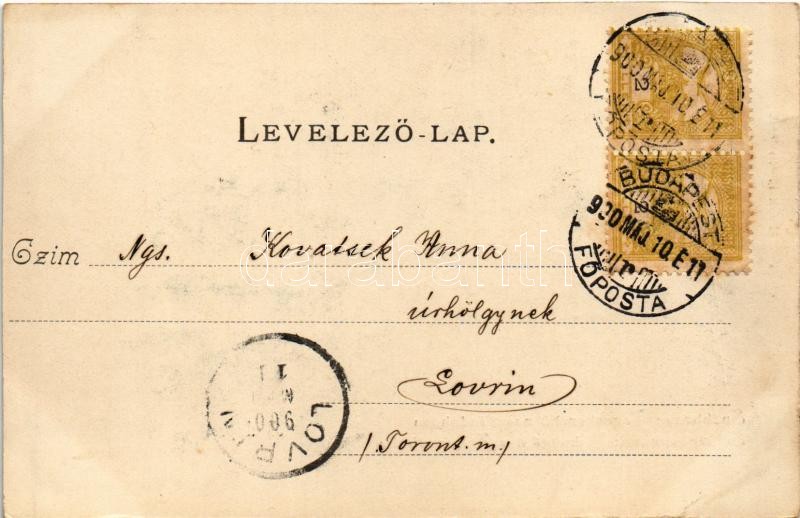 LEVELEZŐ-LAP.
Czim Ngs. Kovatsek Anna
úrhölgynek
Lovrin
(Toront. m.)
2
900 MÁJ. 10. É 11
FŐPOSTA
BUDAPEST
2
900 MÁJ. 10. É 11
FŐPOSTA
LOVRIN
900
11
darabanth